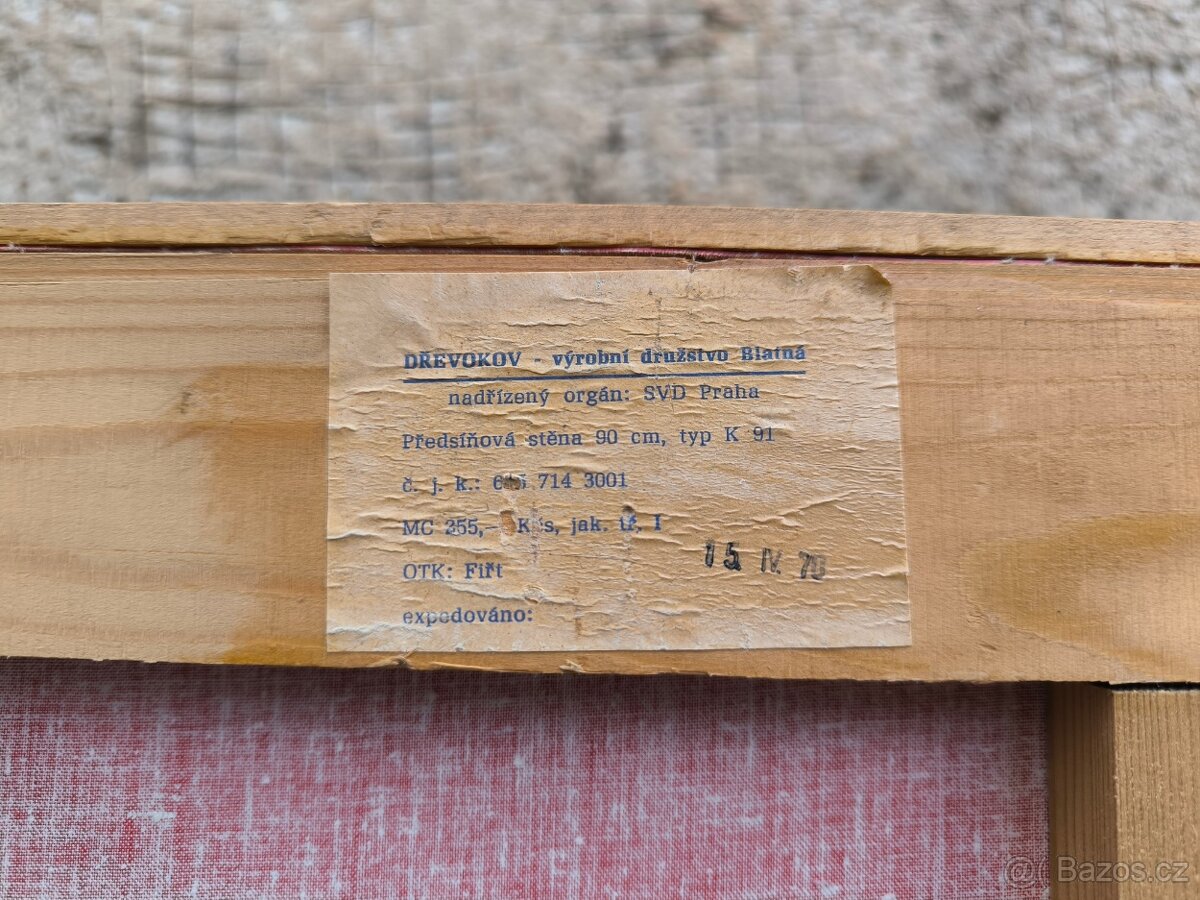 DŘEVOKOV - výrobní družstvo Blatná
nadřízený orgán: SVD Praha
Předsíňová stěna 90 cm, typ K 91
č. j. k.: 714 3001
MC 255,- Kčs, jak. tř. I
15. IV. 70
OTK: Fiřt
expedováno:
@ Bazos.cz